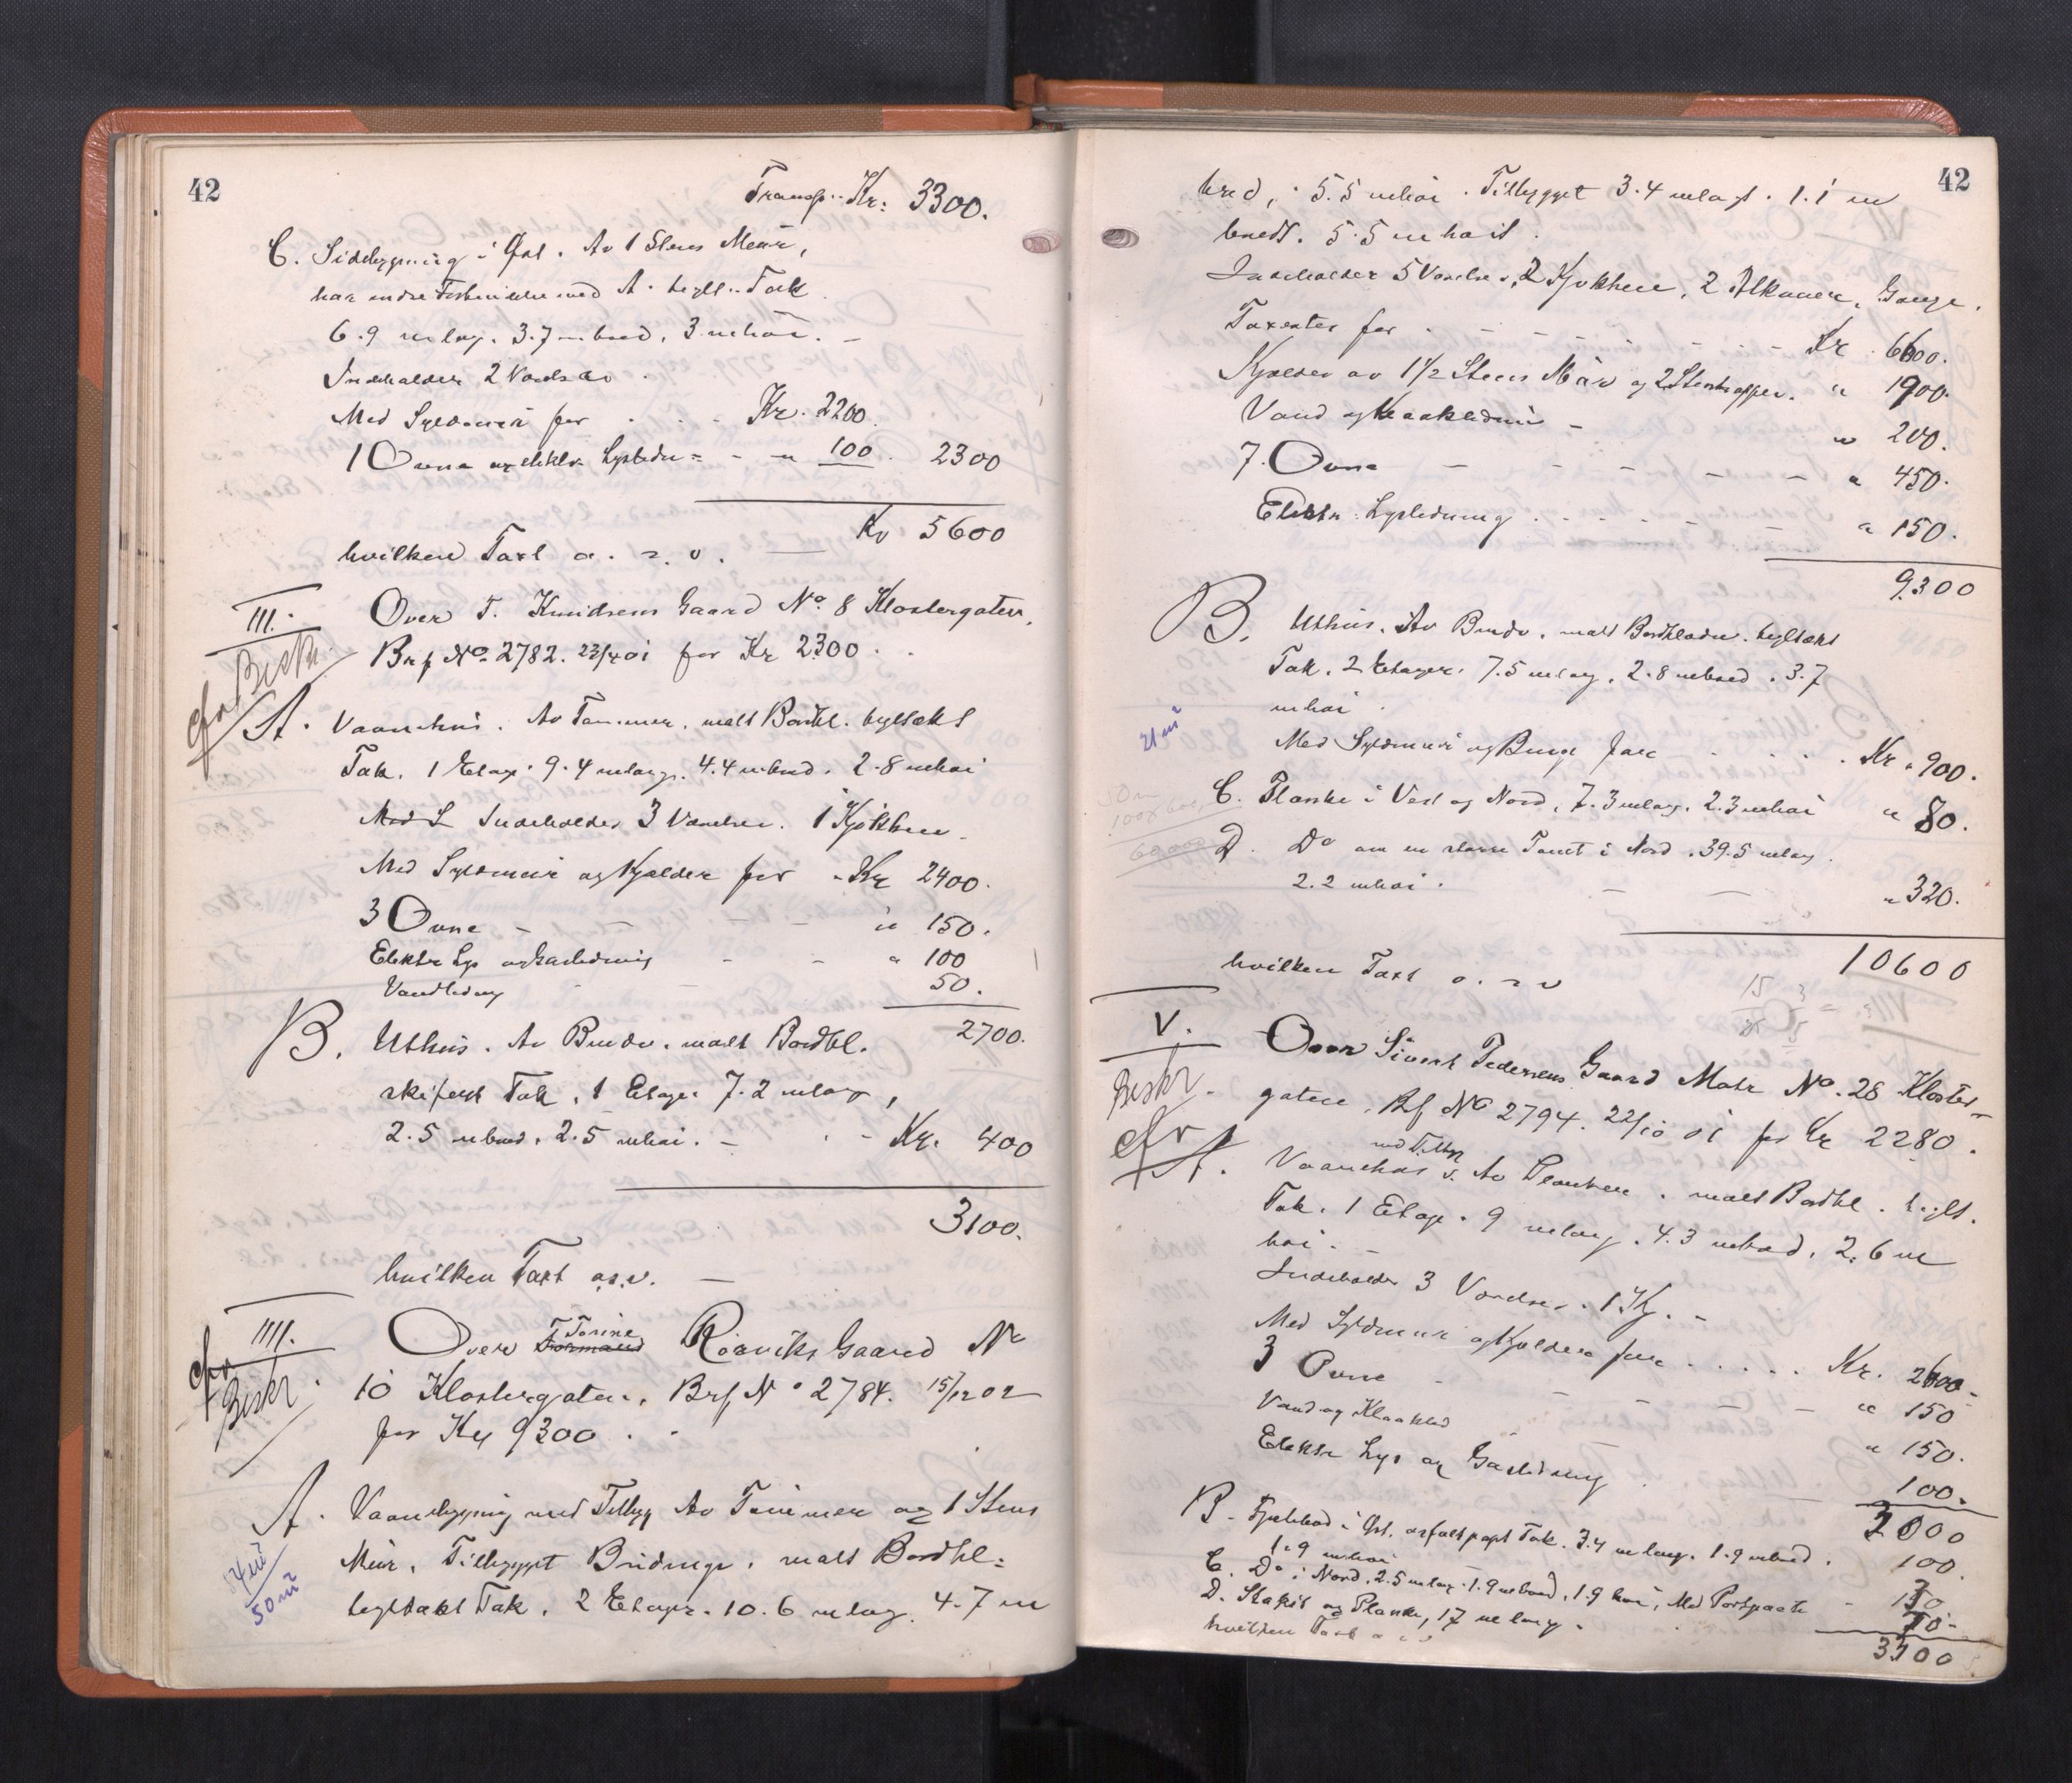 42
Transp. Kr: 3300.
C. Sidebygning i Øst. Av 1 Stens Meur,
har indre Forbindelse med A. tegll. Tak
6.9 m lag. 3.7 m bred, 3 m høi. –
Indeholder 2 Værelser.
Med Syldmur for . . - Kr. 2200.
1 Ovne og elektr. Lysledn = - " 100. 2300
Kr 5600
hvilken Taxt o. s. v. —
III. Over T. Knudsens Gaard No. 8 Klostergaten,
Brf No. 2782. 23/4 01 for Kr 2300.
Beskr.
cfr
A. Vaanehus. Av Tømmer, malt Bordkl. teglsakt
Tak. 1 Etage. 9.4 m lang. 4.4 m bred. 2.8 m høi
Med S Indeholder 3 Værelser. 1 Kjøkken.
Med Syldmur og Kjælder for - Kr 2400.
3 Ovne - - - " 150.
Elektr Lys og Gasledning - - " 100
Vandledning 50.
2700.
B. Uthus. Av Bindv. malt Bordkl.
skifert Tak, 1 Etage. 7.2 m lang,
2.5 m bred. 2.5 m høi. - . - Kr. 400
3100.
hvilken Taxt o.s.v. —
IIII. Over Tormand Torine Roaviks Gaard No
cfr
Beskr.
10 Klostergaten, Brf No 2784. 15/12 02
for Kr 9300 . .
A. Vaanebygning med Tilbyg Av Tømmer og 1 Stens
Mur. Tilbygget Bindings. malt Bordkl =
tegltakt Tak. 2 Etager. 10.6 m lag. 4.7 m
50 m²
42
bred, 5.5 m høi. Tilbygget 3.4 m lagt. 1.1 m
bredt. 5.5 m høit.
Indeholder 5 Værelser, 2 Kjøkken, 2 Alkover, Gange.
Taxeates for - - - - - Kr 6600.
Kjælder av 1 1/2 Stens Mur og 2 Stentrapper. " 1900.
Vand og Kloakledning - " 200.
7. Ovne - - - - - " 450.
Elektr. Lysledning . - - - - " 150.
9300
B. Uthus. Av Bindv. malt Bordklædn. tegltakt
Tak. 2 Etager. 7.5 m lang, 2.8 m bred. 3.7
m høi.
21 m²
Med Syldmur og Binge for . . . . Kr. 900.
C. Planke i Vest og Nord, 7.3 m lang. 2.3 m høi " 80.
D. Do om en større Tomt i Nord. 39.5 m lang.
2.2 m høi. — — " 320.
10600
hvilken Taxt o. s. v
V. Over Sivert Pedersens Gaard Matr No. 28 Kloster-
Beskr.
gaten, Brf No 2794. 22/10 01 for Kr 2280.
cfr
med Tilbyg
A. Vaanehus. Av Planker. malt Bordkl. teglt.
Tak. 1 Etage. 9 m lang. 4.3 m bred. 2.6 m
høi. –
Indeholder 3 Værelser. 1 Kj. -
Med Syldmur og Kjælder for . . . . . Kr. 2600-
3 Ovne - - - - " 150
Vand og Kloakled " 150.
Elektr Lys og Gasledning 100.
3000
B. Fjælebod i Øst. asfaltpapt Tak. 3.4 m lang. 1.9 m bred.
1.9 m høi 100.
C. Do i Nord. 2.5 m lang. 1.9 m bred. 1.9 høi, Med Portgaate - 150.
D. Stakit og Planke, 17 m lang. 50.
3300
hvilken Taxt o s v